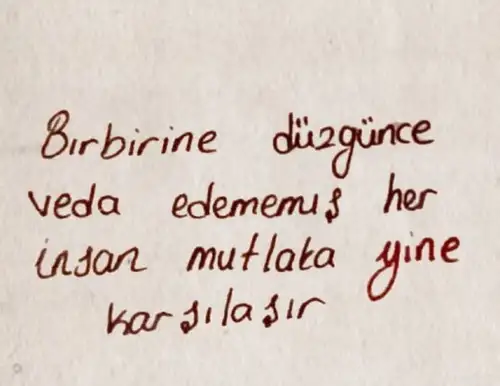 Birbirine düzgünce
veda edememiş her
insan mutlaka yine
karşılaşır